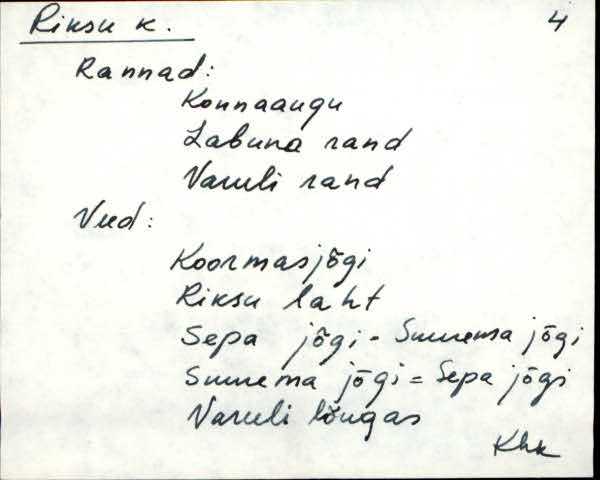 Riksu k. 4
Rannad:
Konnaaugu
Labuna rand
Varuli rand
Veed:
Koormasjõgi
Riksu laht
Sepa jõgi - Suurema jõgi
Suurema jõgi = Sepa jõgi
Varuli lõugas
Khk